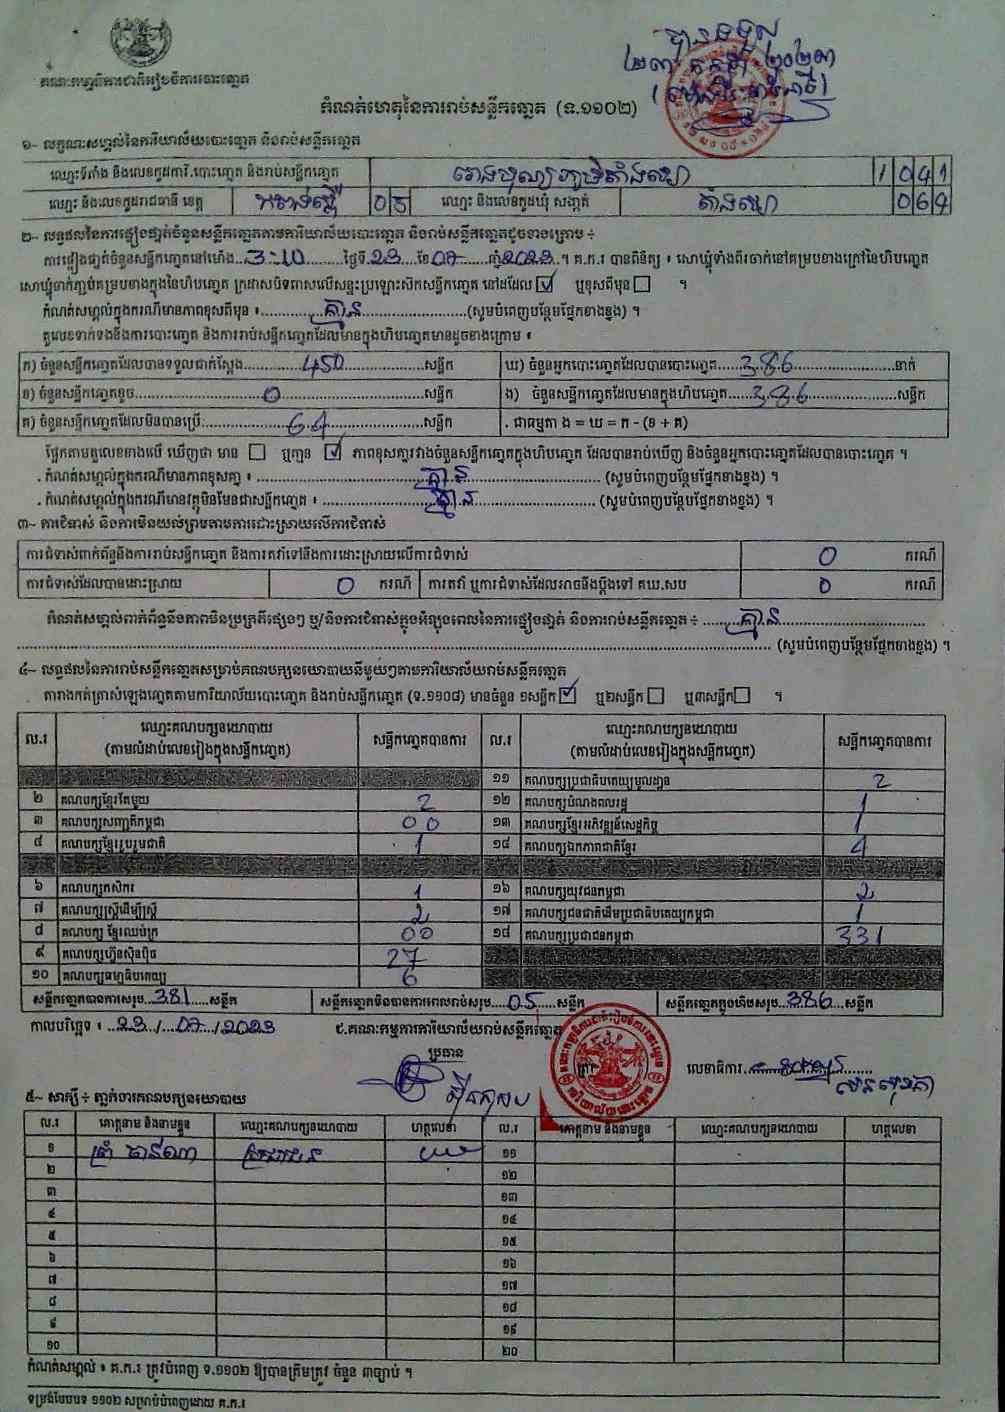 គណៈកម្មាធិការជាតិរៀបចំការបោះឆ្នោត
បានទទួល
២៣ កក្កដា ២០២៣
កំណត់ហេតុនៃការរាប់សន្លឹកឆ្នោត (ទ.១១០២)
១~ លក្ខណៈសម្គាល់នៃការិយាល័យបោះឆ្នោត និងរាប់សន្លឹកឆ្នោត
ឈ្មោះទីតាំង និងលេខកូដការិ.បោះឆ្នោត និងរាប់សន្លឹកឆ្នោត រោងបុណ្យភូមិតាំងឃ្មោ 1041
ឈ្មោះ និងលេខកូដរាជធានី ខេត្ត កំពង់ស្ពឺ 05 ឈ្មោះ និងលេខកូដឃុំ សង្កាត់ 064
២~ លទ្ធផលនៃការផ្ទៀងផ្ទាត់ចំនួនសន្លឹកឆ្នោតតាមការិយាល័យបោះឆ្នោត និងរាប់សន្លឹកឆ្នោតដូចខាងក្រោម ÷
ការផ្ទៀងផ្ទាត់ចំនួនសន្លឹកឆ្នោតនៅម៉ោង...3:10...ថ្ងៃទី 23 ខែ 07 ឆ្នាំ 2023 ។ គ.ក.រ បានពិនិត្យ ៖ សោឃ្មុំទាំងពីរចាក់នៅគម្របខាងក្រៅនៃហិបឆ្នោត
សោឃ្មុំចាក់ភ្ជាប់គម្របខាងក្នុងនៃហិបឆ្នោត ក្រដាសបិទពាសលើសន្ទះប្រឡោះស៊កសន្លឹកឆ្នោត នៅដដែល ☑ ឬខុសពីមុន ☐ ។
កំណត់សម្គាល់ក្នុងករណីមានភាពខុសពីមុន ៖ គ្មាន (សូមបំពេញបន្ថែមផ្នែកខាងខ្នង) ។
តួលេខទាក់ទងនឹងការបោះឆ្នោត និងការរាប់សន្លឹកឆ្នោតដែលមានក្នុងហិបឆ្នោតមានដូចខាងក្រោម ៖
ក) ចំនួនសន្លឹកឆ្នោតដែលបានទទួលជាក់ស្តែង 450 សន្លឹក ឃ) ចំនួនអ្នកបោះឆ្នោតដែលបានបោះឆ្នោត 386 នាក់
ខ) ចំនួនសន្លឹកឆ្នោតខូច 0 សន្លឹក ង) ចំនួនសន្លឹកឆ្នោតដែលមានក្នុងហិបឆ្នោត 386 សន្លឹក
គ) ចំនួនសន្លឹកឆ្នោតដែលមិនបានប្រើ 64 សន្លឹក . ជាធម្មតា ង = ឃ = ក - (ខ + គ)
ផ្អែកតាមតួលេខខាងលើ ឃើញថា មាន ☐ ឬគ្មាន ☑ ភាពខុសគ្នារវាងចំនួនសន្លឹកឆ្នោតក្នុងហិបឆ្នោត ដែលបានរាប់ឃើញ និងចំនួនអ្នកបោះឆ្នោតដែលបានបោះឆ្នោត ។
. កំណត់សម្គាល់ក្នុងករណីមានភាពខុសគ្នា ៖ គ្មាន (សូមបំពេញបន្ថែមផ្នែកខាងខ្នង) ។
. កំណត់សម្គាល់ក្នុងករណីមានវត្ថុមិនមែនជាសន្លឹកឆ្នោត ៖ គ្មាន (សូមបំពេញបន្ថែមផ្នែកខាងខ្នង) ។
៣~ ការជំទាស់ និងការមិនយល់ព្រមតាមការដោះស្រាយលើការជំទាស់
ការជំទាស់ពាក់ព័ន្ធនឹងការរាប់សន្លឹកឆ្នោត និងការតវ៉ាទៅនឹងការដោះស្រាយលើការជំទាស់ 0 ករណី
ការជំទាស់ដែលបានដោះស្រាយ 0 ករណី ការតវ៉ា ឬការជំទាស់ដែលអាចនឹងប្តឹងទៅ គឃ.សប 0 ករណី
កំណត់សម្គាល់ពាក់ព័ន្ធនឹងភាពមិនប្រក្រតីផ្សេងៗ ឬ/និងការជំទាស់ក្នុងអំឡុងពេលនៃការផ្ទៀងផ្ទាត់ និងការរាប់សន្លឹកឆ្នោត ÷ គ្មាន
(សូមបំពេញបន្ថែមផ្នែកខាងខ្នង) ។
៤~ លទ្ធផលនៃការរាប់សន្លឹកឆ្នោតសម្រាប់គណបក្សនយោបាយនីមួយៗតាមការិយាល័យរាប់សន្លឹកឆ្នោត
តារាងកត់ត្រាសំឡេងឆ្នោតតាមការិយាល័យបោះឆ្នោត និងរាប់សន្លឹកឆ្នោត (ទ.១១០៨) មានចំនួន ១សន្លឹក ☑ ឬ២សន្លឹក ☐ ឬ៣សន្លឹក ☐ ។
ល.រ ឈ្មោះគណបក្សនយោបាយ (តាមលំដាប់លេខរៀងក្នុងសន្លឹកឆ្នោត) សន្លឹកឆ្នោតបានការ ល.រ ឈ្មោះគណបក្សនយោបាយ (តាមលំដាប់លេខរៀងក្នុងសន្លឹកឆ្នោត) សន្លឹកឆ្នោតបានការ
១១ គណបក្សប្រជាធិបតេយ្យមូលដ្ឋាន 2
២ គណបក្សខ្មែរតែមួយ 2 ១២ គណបក្សបំណងពលរដ្ឋ 1
៣ គណបក្សសញ្ជាតិកម្ពុជា 00 ១៣ គណបក្សខ្មែរអភិវឌ្ឍន៍សេដ្ឋកិច្ច 1
៤ គណបក្សខ្មែររួបរួមជាតិ 1 ១៤ គណបក្សឯកភាពជាតិខ្មែរ 4
៦ គណបក្សកសិករ 1 ១៦ គណបក្សយុវជនកម្ពុជា 2
៧ គណបក្សស្ត្រីដើម្បីស្ត្រី 2 ១៧ គណបក្សជនជាតិដើមប្រជាធិបតេយ្យកម្ពុជា 1
៨ គណបក្ស ខ្មែរឈប់ក្រ 00 ១៨ គណបក្សប្រជាជនកម្ពុជា 331
៩ គណបក្សហ៊្វុនស៊ិនប៉ិច 27
១០ គណបក្សធម្មាធិបតេយ្យ 6
សន្លឹកឆ្នោតបានការសរុប...381...សន្លឹក សន្លឹកឆ្នោតមិនបានការពេលរាប់សរុប...05...សន្លឹក សន្លឹកឆ្នោតក្នុងហិបសរុប...386...សន្លឹក
កាលបរិច្ឆេទ ៖ 23/07/2023 ជ.គណៈកម្មការការិយាល័យរាប់សន្លឹកឆ្នោត
ប្រធាន
លេខាធិការ
៥~ សាក្សី ÷ ភ្នាក់ងារគណបក្សនយោបាយ
ល.រ គោត្តនាម និងនាមខ្លួន ឈ្មោះគណបក្សនយោបាយ ហត្ថលេខា ល.រ គោត្តនាម និងនាមខ្លួន ឈ្មោះគណបក្សនយោបាយ ហត្ថលេខា
១ ប្រជាជន ១១
២ ១២
៣ ១៣
៤ ១៤
៥ ១៥
៦ ១៦
៧ ១៧
៨ ១៨
៩ ១៩
១០ ២០
កំណត់សម្គាល់ ៖ គ.ក.រ ត្រូវបំពេញ ទ.១១០២ ឱ្យបានត្រឹមត្រូវ ចំនួន ៣ច្បាប់ ។
ទម្រង់បែបបទ ១១០២ សម្រាប់បំពេញដោយ គ.ក.រ